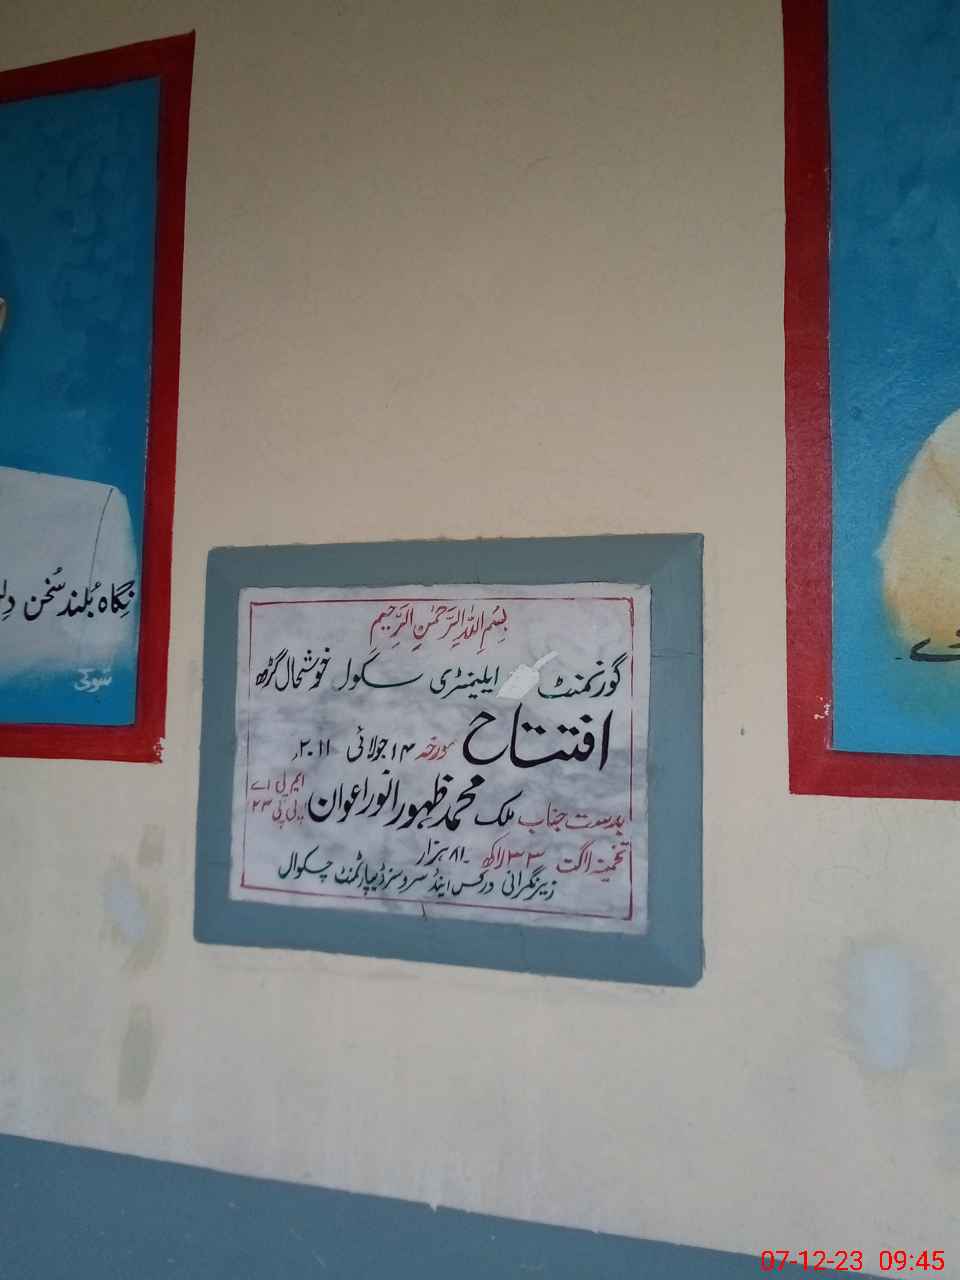 بِسْمِ اللّٰهِ الرَّحْمٰنِ الرَّحِيْمِ
گورنمنٹ ایلیمنٹری سکول خوشحال گڑھ
افتتاح مورخہ ۱۴ جولائی ۲۰۱۱ء
بدست جناب ملک محمد ظہور انور اعوان ایم پی اے پی پی ۲۳
تخمینہ لاگت ۳۳ لاکھ ۸۱ ہزار
زیر نگرانی ورکس اینڈ سروسز ڈیپارٹمنٹ چکوال
نگاہ بُلند سُخن
شوکی
07-12-23 09:45